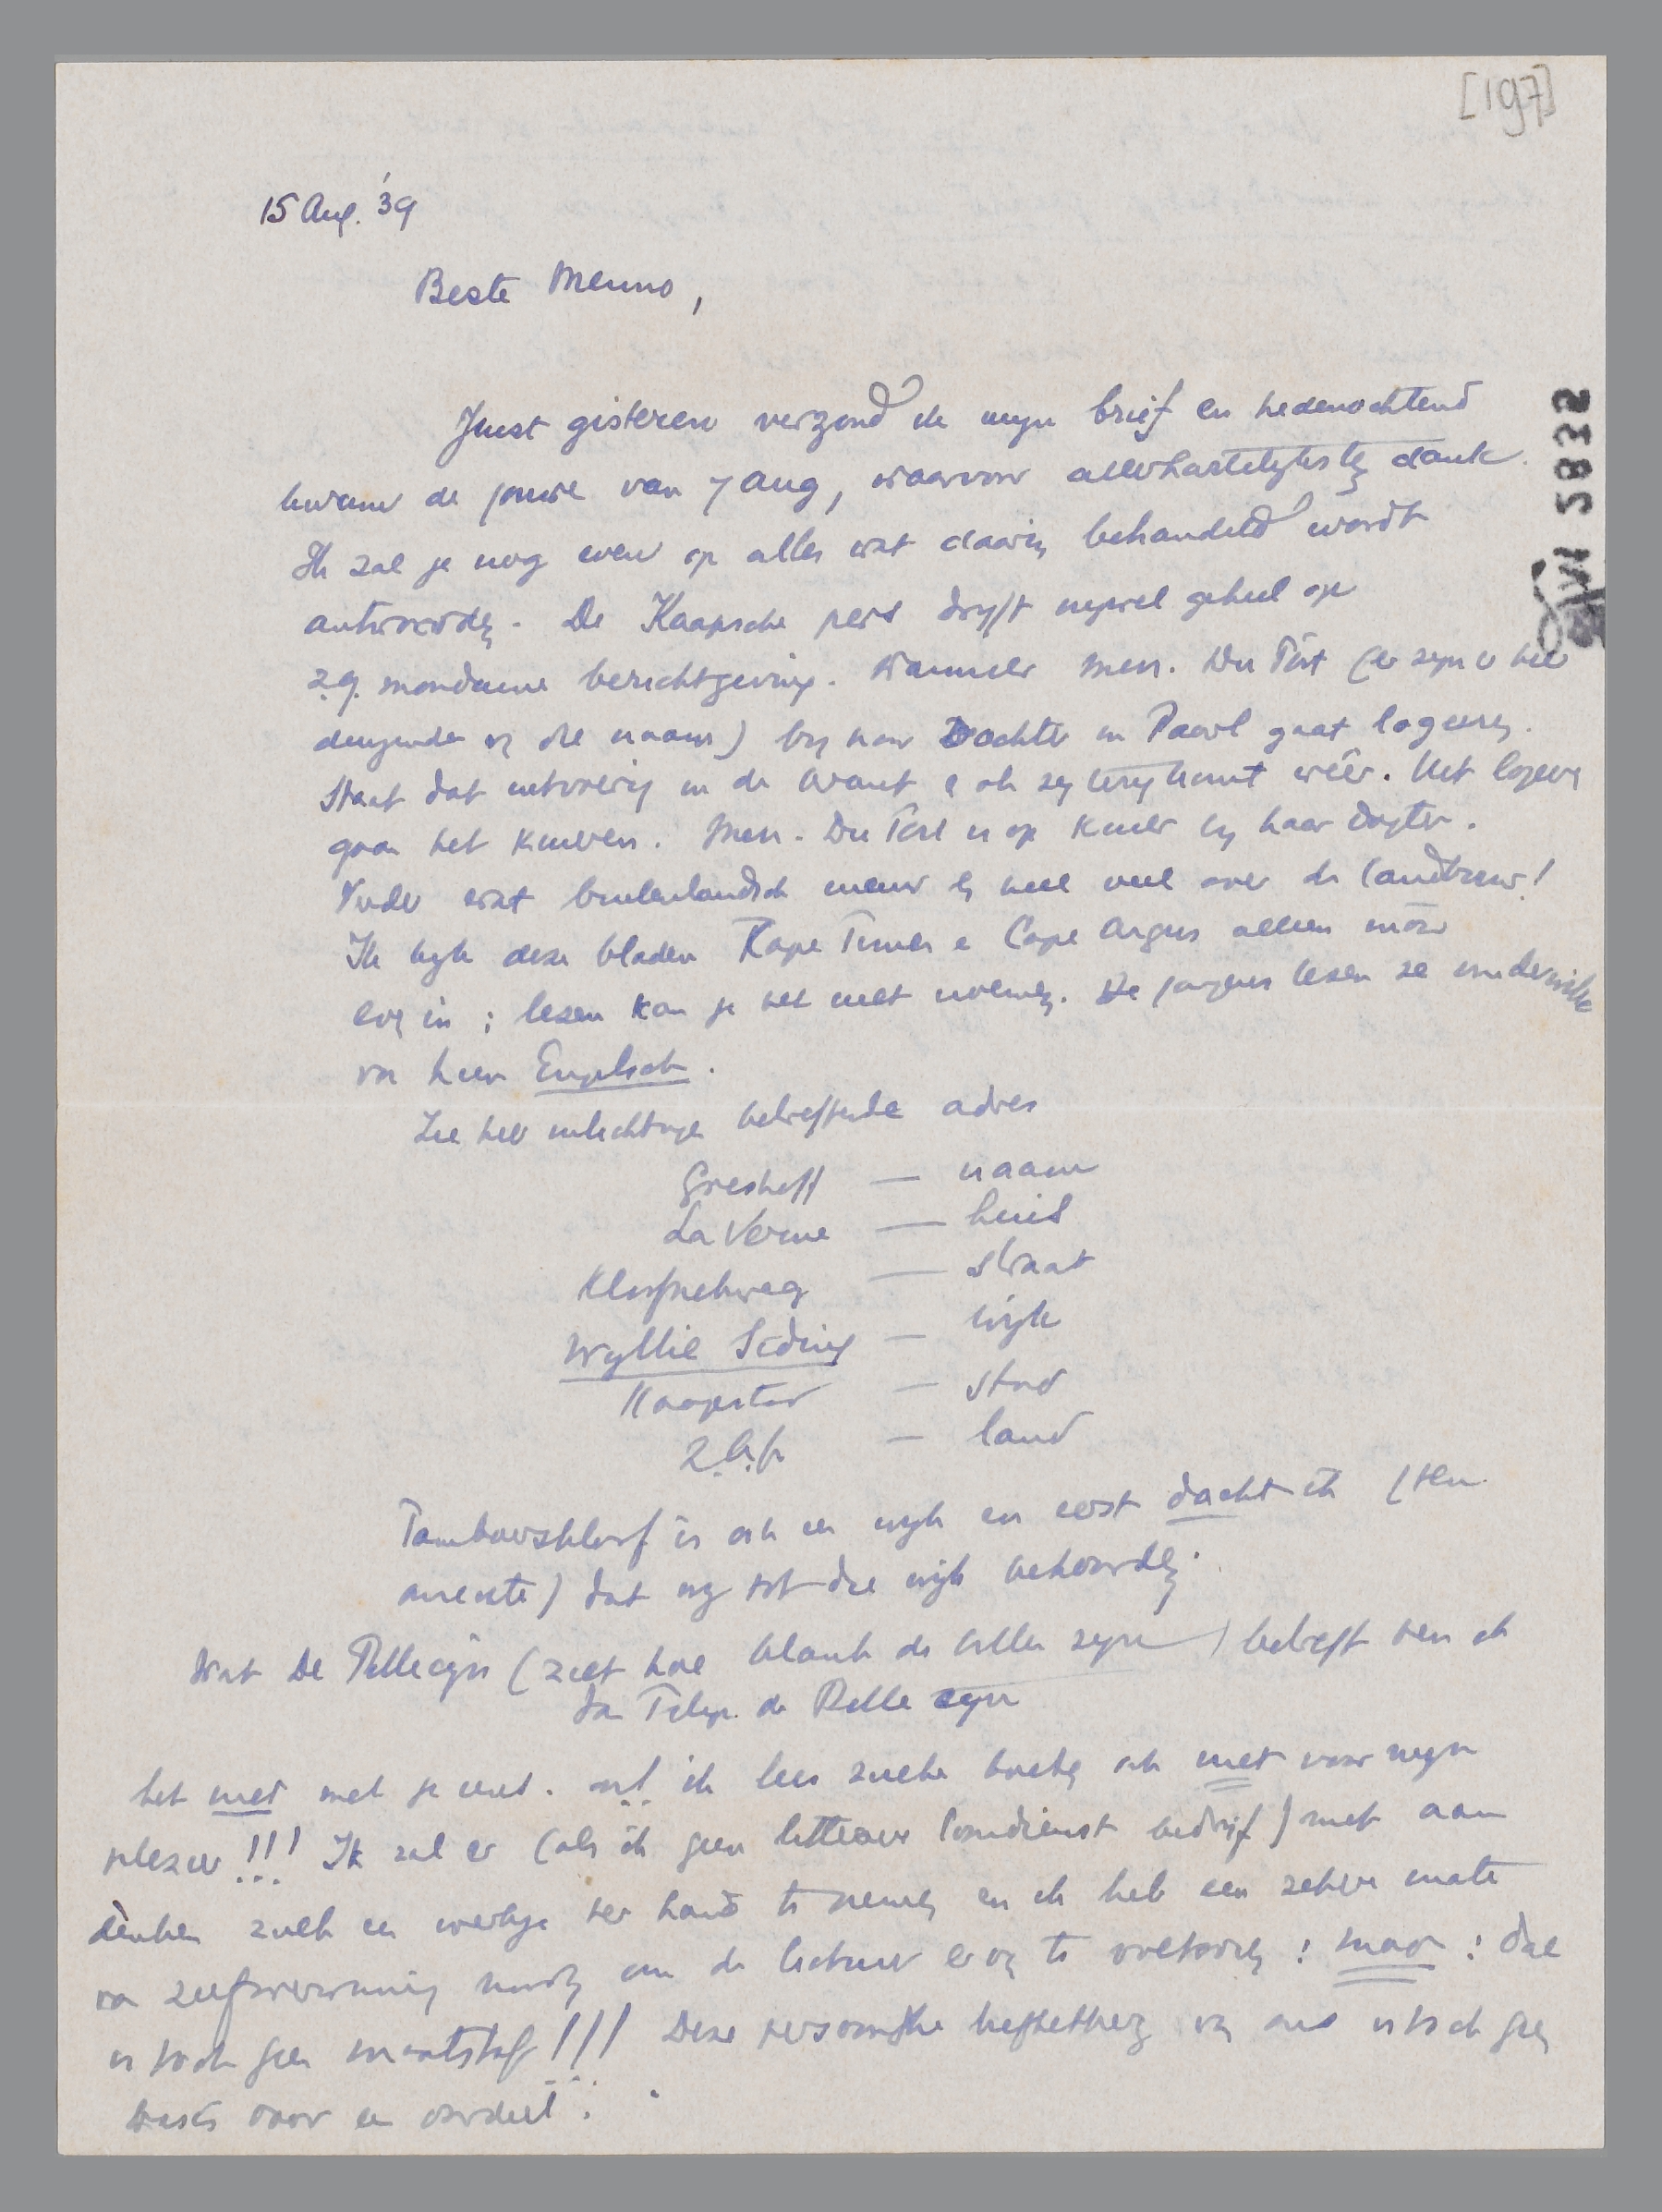 [197]
15 Aug. '39
Beste Menno,
Juist gisteren verzond ik mijn brief en hedenochtend
kwam de jouwe van 7 Aug, waarvoor allerhartelijkste dank.
Ik zal je nog even op alles wat daarin behandeld wordt
antwoorden. De Kaapsche pers drijft nywel geheel op
z.g. mondaine berichtgeving. Wanneer Mevr. Du Toit (er zijn er hier
duizenden v. die naam) bij haar Dochter in Paarl gaat logeeren.
Staat dat uitvoerig in de krant & als zij terugkomt wéér. Uit logeeren
gaan het kuieren. Mevr. Du Toit is op kuier by haar dogter.
Verder wat buitenlandsch nieuws en heel veel over de landbouw!
Ik kijk deze bladen Kape Times e Cape Argus alleen maar
even in; lezen kan je het niet noemen. De jongens lezen ze terwille
van hun Engelsch.
Zie hier inlichtingen betreffende adres
Greshoff — naam
La Verne — huis
Kloofnekweg — straat
Wyllie Siding — wijk
Kaapstad — stad
Z.Afr — land
Tamboerskloof is ook een wijk en eerst dacht ik (ten
onrechte) dat wij tot die wijk behoorden.
Wat De Pellecijn (ziet hoe blank de billen zijn) betreft ben ik
Da Filip. de Pelle cijn
het niet met je eens. Want ik lees zulke boeken ook niet voor mijn
plezier!!! Ik zal er (als ik geen litterair loondienst bedrijf) niet aan
denken zulk een werkje ter hand te nemen en ik heb een zekere mate
van zelfoverwinning noodig om de lectuur ervan te voltooien: maar: dat
is toch geen maatstaf!!! Deze persoonlijke liefhebberij van ons is toch geen
basis voor een oordeel.